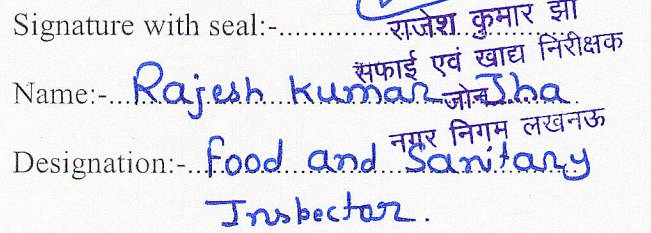 Signature with seal:-.................
राजेश कुमार झा
सफाई एवं खाद्य निरीक्षक
Name:-...Rajesh Kumar Jha
जोन
नगर निगम लखनऊ
Designation:-..food and Sanitary
Inspector.